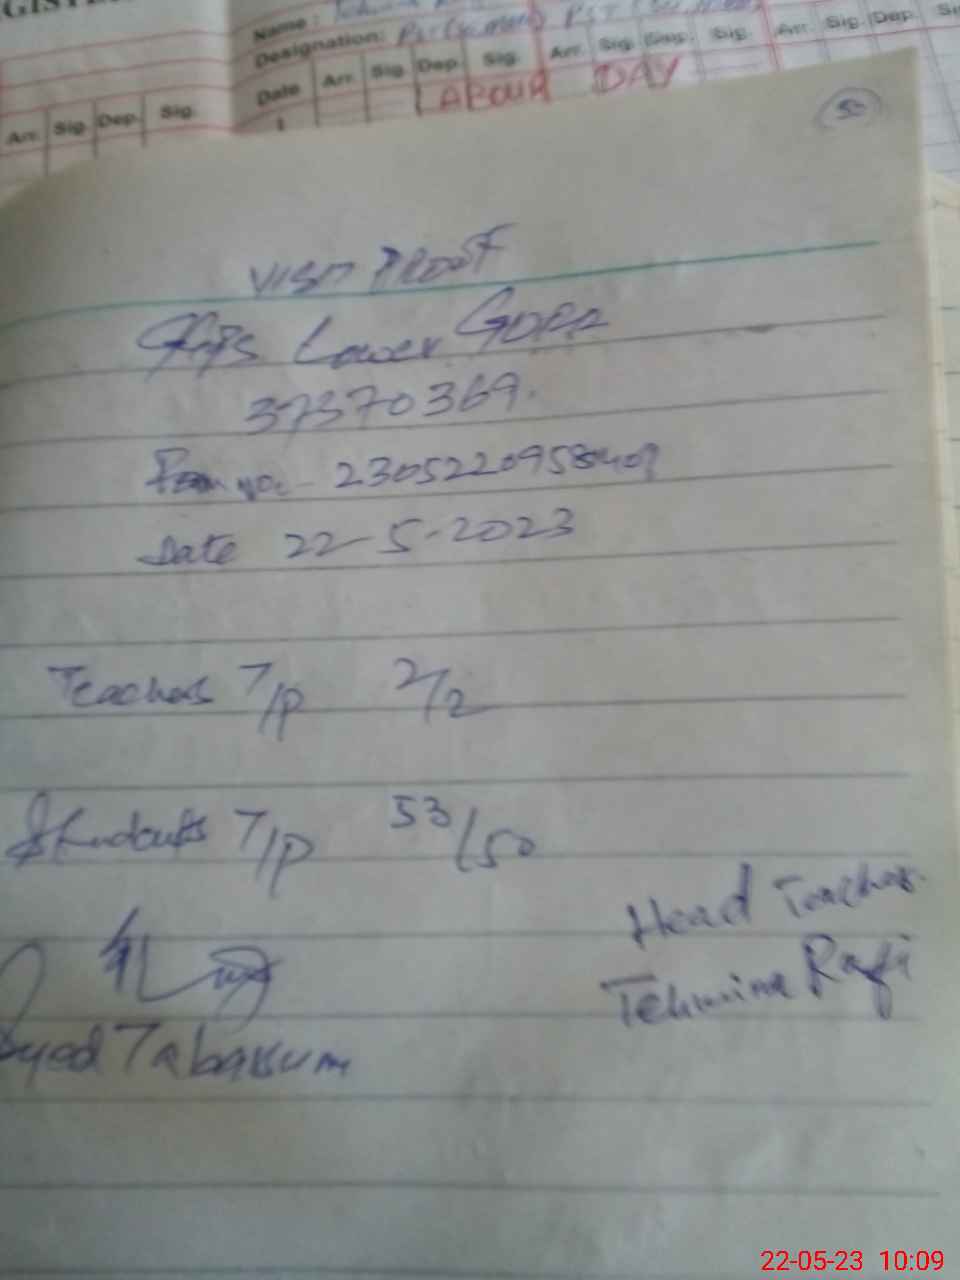 Name :
Designation:
Date Arr. Sig. Dep. Sig. Arr. Sig. Dep. Sig. Arr. Sig. Dep.
LABOUR DAY
1
Arr. Sig. Dep. Sig.
50
VISIT PROOF
GGPS Lower
37370369.
Date 22-5-2023
Teachers T/P 2/2
Students T/P 53/50
Head Teacher.
Tehmina Rafi
Syed Tabassum
22-05-23 10:09